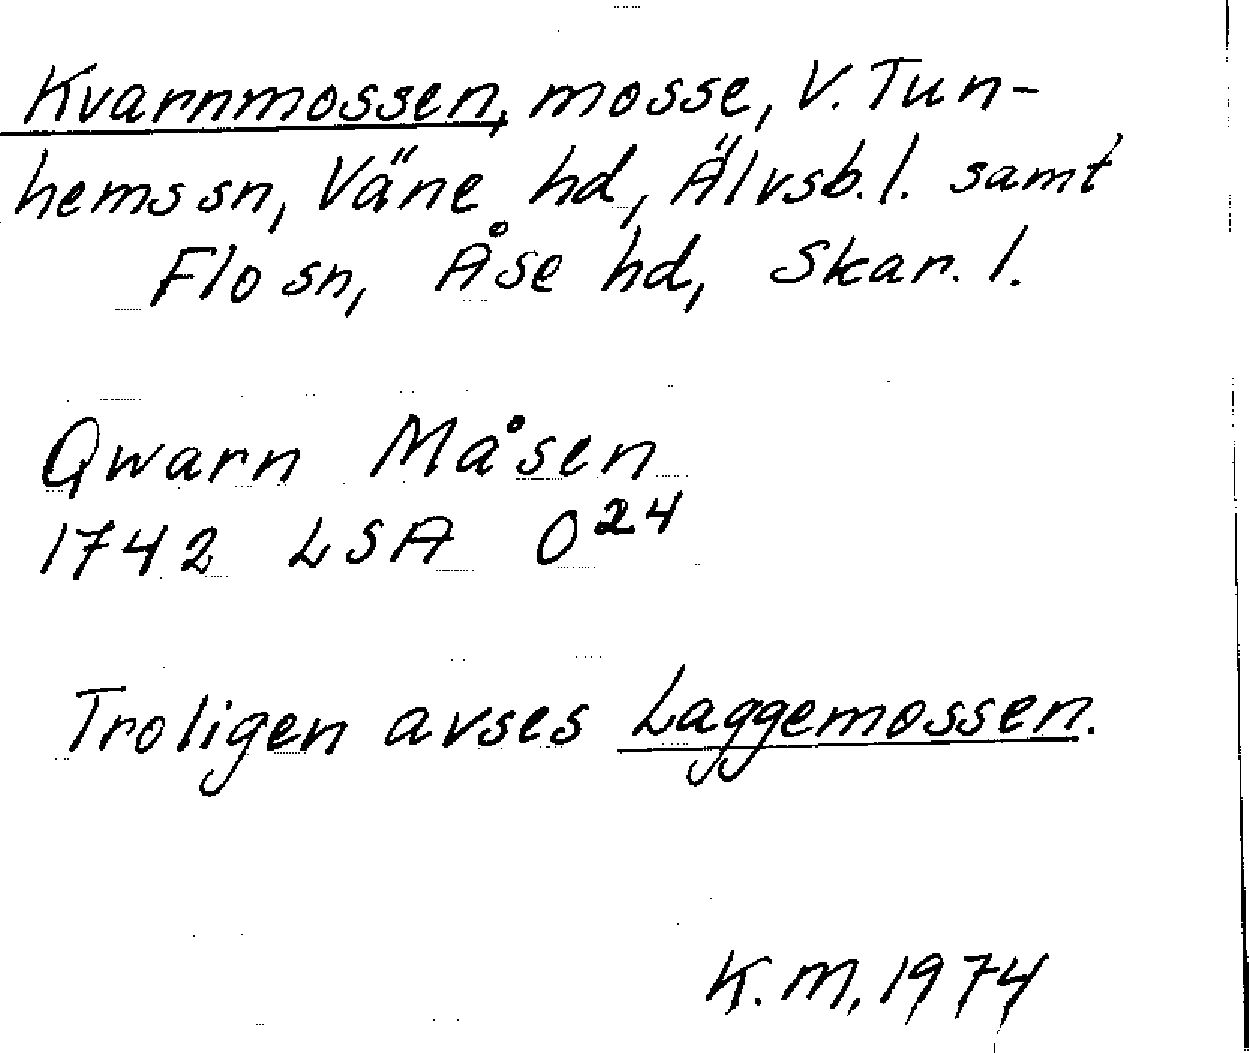 Kvarnmossen, mosse, V. Tun-
hems sn, Väne hd, Älvsb. l. samt
Flo sn, Åse hd, Skar. l.
Qwarn Måsen
1742 LSA O²⁴
Troligen avses Laggemossen.
K.M. 1974